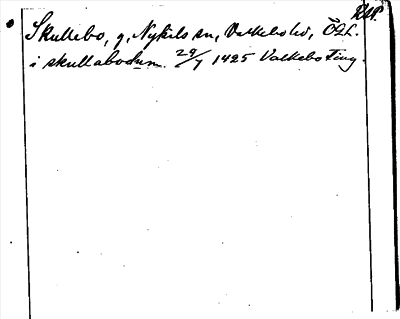 Skullebo, g, Nykils sn, Valkebo hd, ÖGL.
i skullabodum. 29/7 1425 Valkebo ting.